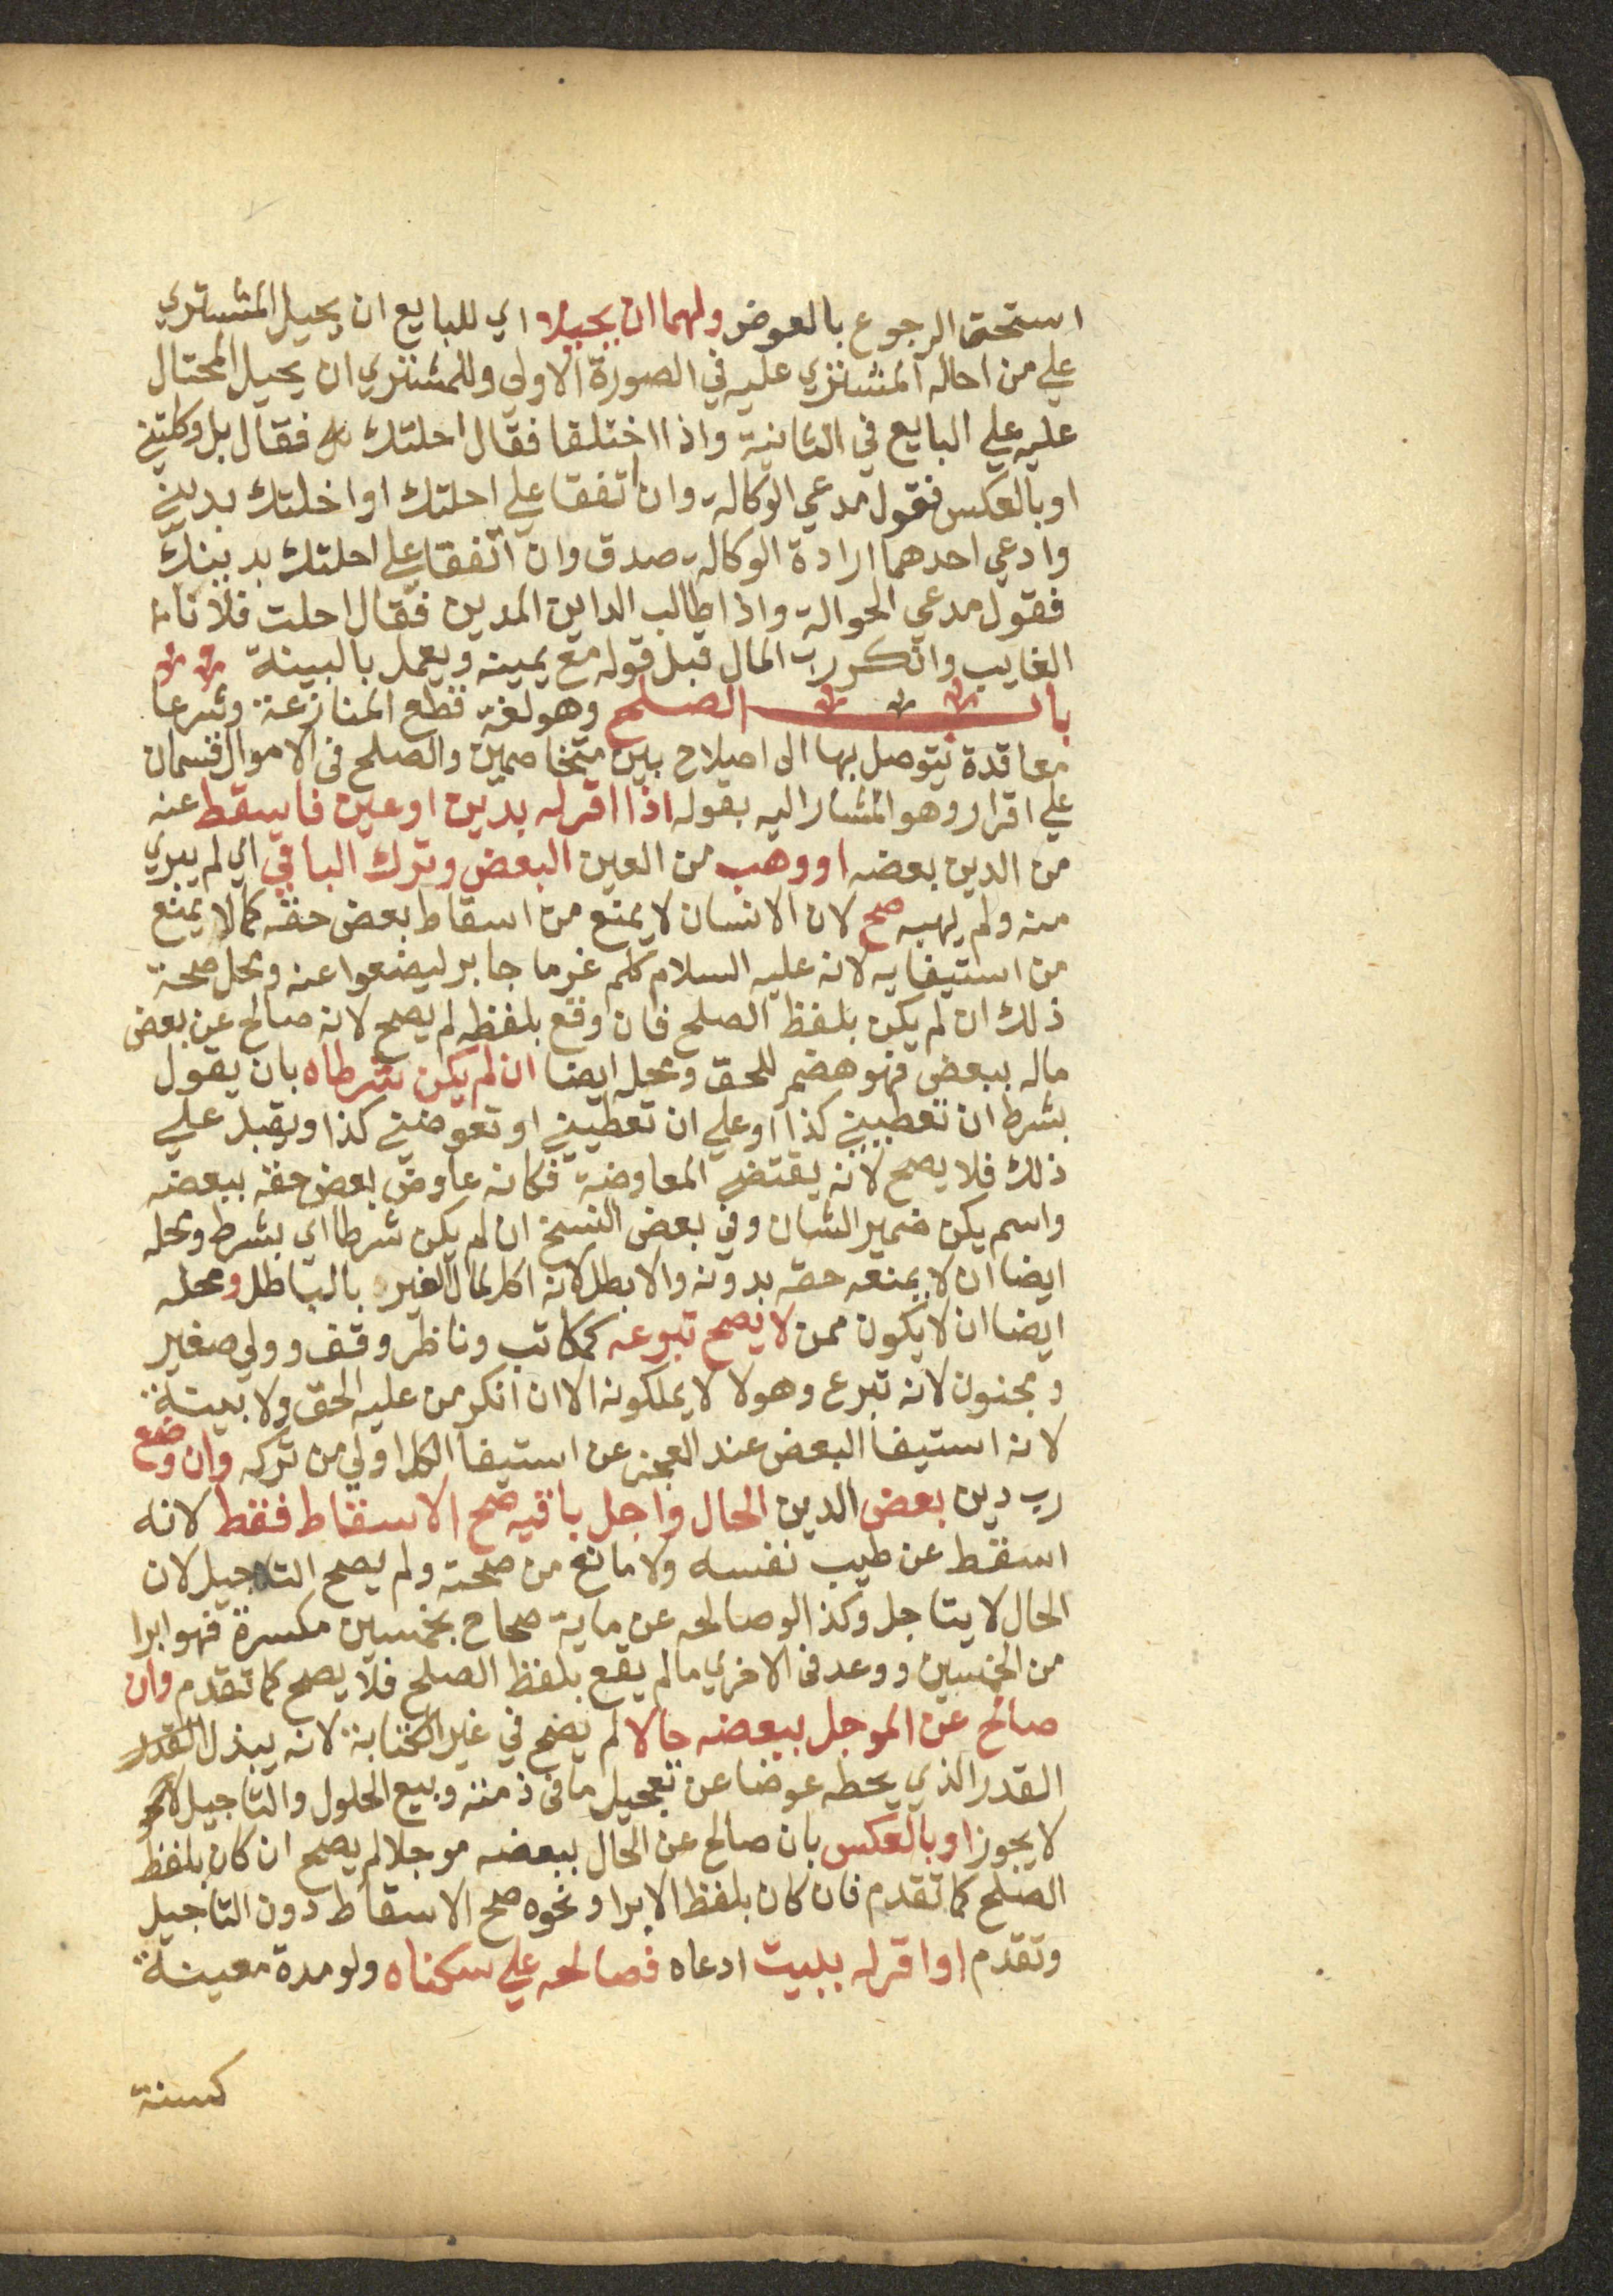 استحق الرجوع بالعوض ولهما ان يحيلا اي للبايع ان يحيل المشتري
علي من احاله المشتري عليه في الصورة الاولي وللمشتري ان يحيل المحتال
عليه علي البايع في الثانية واذا اختلفا فقال احلتك فقال بل وكلتني
او بالعكس فقول مدعي الوكالة وان اتفقا علي احلتك او احلتك بديني
وادعي احدهما ارادة الوكالة صدق وان اتفقا علي احلتك بدينك
فقول مدعي الحوالة واذا طالب الداين المدين فقال احلت فلانا
الغايب وانكر رب المال قبل قوله مع يمينه ويعمل بالبينة
باب الصلح وهو لغة قطع المنازعة وشرعا
معاقدة يتوصل بها الى اصلاح بين متخاصمين والصلح في الاموال قسمان
علي اقرار وهو المشار اليه بقوله اذا اقر له بدين او عين فاسقط عنه
من الدين بعضه او وهب من العين البعض وترك الباقي اي لم يبري
منه ولم يهبه صح لان الانسان لا يمنع من اسقاط بعض حقه كما لا يمنع
من استيفايه لانه عليه السلام كلم غرما جابر ليضعوا عنه ومحل صحة
ذلك ان لم يكن بلفظ الصلح فان وقع بلفظه لم يصح لانه صالح عن بعض
ماله ببعض فهو هضم للحق ومحله ايضا ان لم يكن شرطاه بان يقول
بشرط ان تعطيني كذا او علي ان تعطيني او تعوضني كذا ويقبل علي
ذلك فلا يصح لانه يقتضي المعاوضة فكانه عاوض بعض حقه ببعضه
واسم يكن ضمير الشان وفي بعض النسخ ان لم يكن شرطا اي بشرط ومحله
ايضا ان لا يمنعه حقه بدونه والا بطل لانه اكل لمال الغير بالباطل ومحله
ايضا ان لا يكون ممن لا يصح تبرعه كمكاتب وناظر وقف وولي صغير
ومجنون لانه تبرع وهولا لا يملكونه الا ان انكر من عليه الحق ولا بينة
لانه استيفا البعض عند العجز عن استيفا الكل اولي من تركه وان وضع
رب دين بعض الدين الحال واجل باقيه صح الاسقاط فقط لانه
اسقط عن طيب نفسه ولا مانع من صحته ولم يصح التاجيل لان
الحال لا يتاجل وكذا لو صالحه عن ماية صحاح بخمسين مكسرة فهو ابرا
من الخمسين ووعد في الاخري ما لم يقع بلفظ الصلح فلا يصح كما تقدم وان
صالح عن الموجل ببعضه حالا لم يصح في غير الكتابة لانه يبذل القدر
القدر الذي يحطه عوضا عن تعجيل ما في ذمته وبيع الحلول والتاجيل
لا يجوز او بالعكس بان صالح عن الحال ببعضه موجلا لم يصح ان كان بلفظ
الصلح كما تقدم فان كان بلفظ الابرا ونحوه صح الاسقاط دون التاجيل
وتقدم او اقر له ببيت ادعاه فصالحه علي سكناه ولو مدة معينة
كسنة